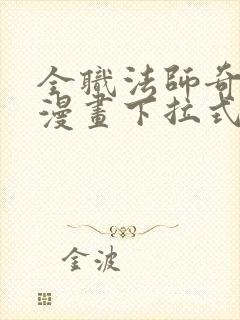 全職法師奇
漫畫下拉式
金波